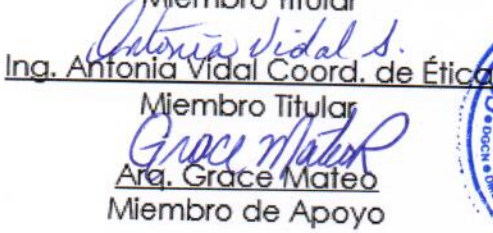 Miembro Titular
Antonia Vidal S.
Ing. Antonia Vidal Coord. de Ética
Miembro Titular
Grace Mateo R
Arq. Grace Mateo
Miembro de Apoyo
DGCN